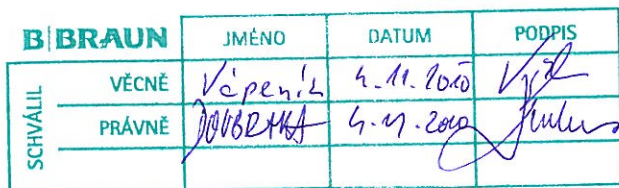 B|BRAUN JMÉNO DATUM PODPIS
SCHVÁLIL
VĚCNĚ Vápeník 4.11.2010
PRÁVNĚ DOUBRAVA 4.11.2010